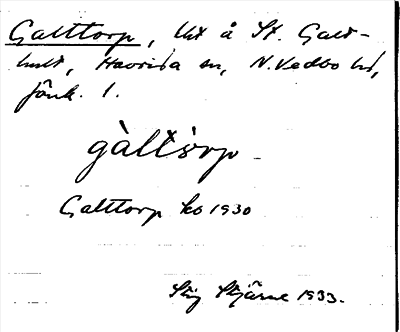 Galttorp, lht å St. Galt-
hult, Haurida sn, N. Vedbo hd,
Jönk. l.
gàltòrp
Galttorp ko 1930
Stig Stjärne 1933.